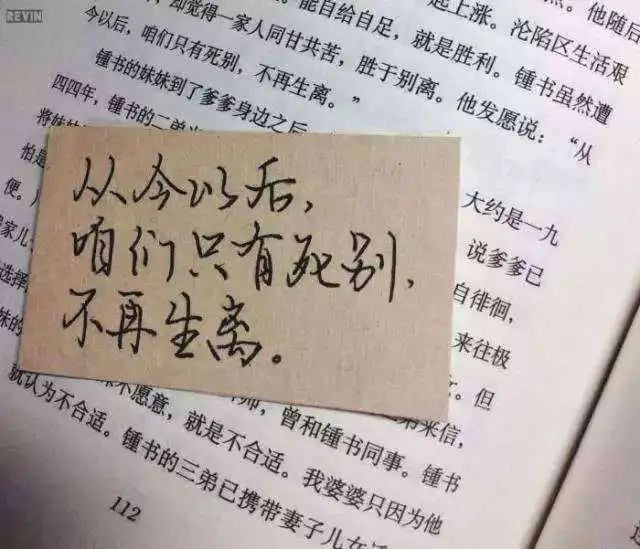 REVIN
能自给自足，就是胜利。沦陷区生活艰
却觉得一家人同甘共苦，胜于别离。他发愿说：“从
今以后，咱们只有死别，不再生离。”
锺书的妹妹到了爹爹身边之后
大约是一九
四四年，锺书的二弟
说爹爹已
将妹妹
自徘徊，
怕是
来往极
便。
但
家儿
选择
来信，
妹的
曾和锺书同事。锺书
不愿意，就是不合适。我婆婆只因为他
就认为不合适。锺书的三弟已携带妻子儿女
112
从今以后，
咱们只有死别，
不再生离。